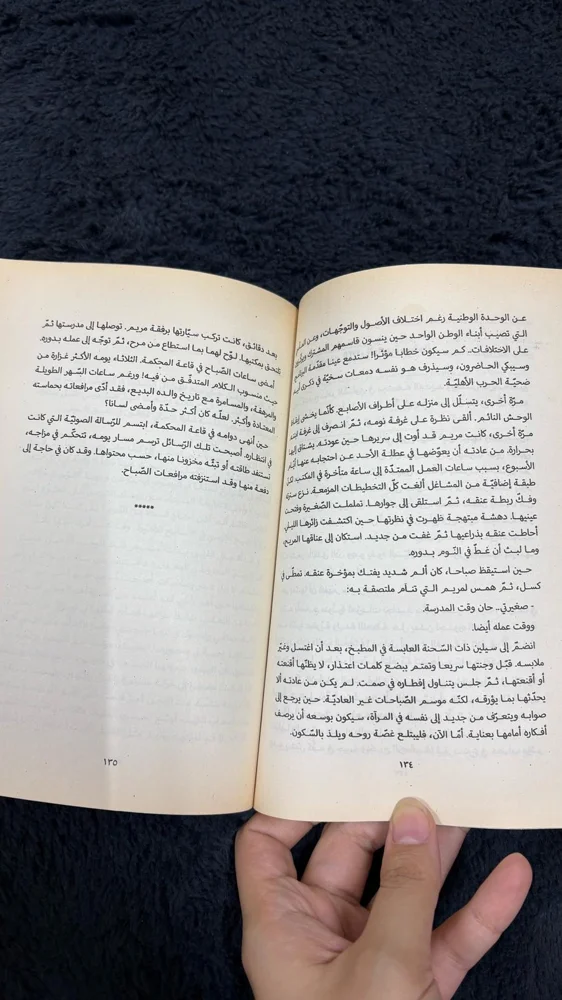 عن الوحدة الوطنية رغم اختلاف الأصول والتوجّهات، وعن
التي تصيب أبناء الوطن الواحد حين ينسون قاسمهم المشترك
على الاختلافات.. كم سيكون خطابا مؤثّرا! ستدمع عينا مقدّمة
وسيبكي الحاضرون، وسيذرف هو نفسه دمعات سخيّة في ذكرى
ضحيّة الحرب الأهليّة.
مرّة أخرى، يتسلّل إلى منزله على أطراف الأصابع. كأنّما يخشى إيقاظ
الوحش النائم. ألقى نظرة على غرفة نومه، ثمّ انصرف إلى غرفة
مرّة أخرى، كانت مريم قد أوت إلى سريرها حين عودته. يشتاق إليها
بحرارة. من عادته أن يعوّضها في عطلة الأحد عن احتجابه عنها أيّام
الأسبوع، بسبب ساعات العمل الممتدّة إلى ساعة متأخرة في المكتب. لكنّ
طبقة إضافيّة من المشاغل ألغت كلّ التخطيطات المزمعة. نزع سترته
وفكّ ربطة عنقه، ثمّ استلقى إلى جوارها. تململت الصّغيرة وفتحت
عينيها. دهشة مبتهجة ظهرت في نظرتها حين اكتشفت زائرها الليلي.
أحاطت عنقه بذراعيها ثمّ غفت من جديد. استكان إلى عناقها المريح،
وما لبث أن غطّ في النّوم بدوره.
حين استيقظ صباحا، كان ألم شديد يفتك بمؤخرة عنقه. تمطّى في
كسل، ثمّ همس لمريم التي تنام ملتصقة به:
- صغيرتي.. حان وقت المدرسة.
ووقت عمله أيضا.
انضمّ إلى سيلين ذات السّحنة العابسة في المطبخ، بعد أن اغتسل وغيّر
ملابسه. قبّل وجنتها سريعا وتمتم ببضع كلمات اعتذار، لا يظنّها أقنعته
أو أقنعتها، ثمّ جلس يتناول إفطاره في صمت. لم يكن من عادته ألا
يحدّثها بما يؤرقه، لكنّه موسم الصّباحات غير العاديّة. حين يرجع إلى
صوابه ويتعرّف من جديد إلى نفسه في المرآة، سيكون بوسعه أن يرصف
أفكاره أمامها بعناية. أمّا الآن، فليبتلع غصّة روحه ويلذ بالسّكون.
١٣٤
بعد دقائق، كانت تركب سيّارتها برفقة مريم. توصلها إلى مدرستها ثمّ
تلتحق بمكتبها. لوّح لهما بما استطاع من مرح، ثمّ توجّه إلى عمله بدوره.
أمضى ساعات الصّباح في قاعة المحكمة. الثلاثاء، يومه الأكثر غزارة من
حيث منسوب الكلام المتدفّق من فيه! ورغم ساعات السّهر الطويلة
والمرهقة، والمسامرة مع تاريخ والده البديع، فقد أدّى مرافعاته بحماسته
المعتادة وأكثر. لعلّه كان أكثر حدّة وأمضى لسانا؟
حين أنهى دوامه في قاعة المحكمة، ابتسم للرّسالة الصوتيّة التي كانت
في انتظاره. أصبحت تلك الرّسائل ترسم مسار يومه، تتحكّم في مزاجه،
تستنفد طاقته أو تبثّه مخزونا منها، حسب محتواها. وقد كان في حاجة إلى
دفعة منها وقد استنزفته مرافعات الصّباح.
*****
١٣٥